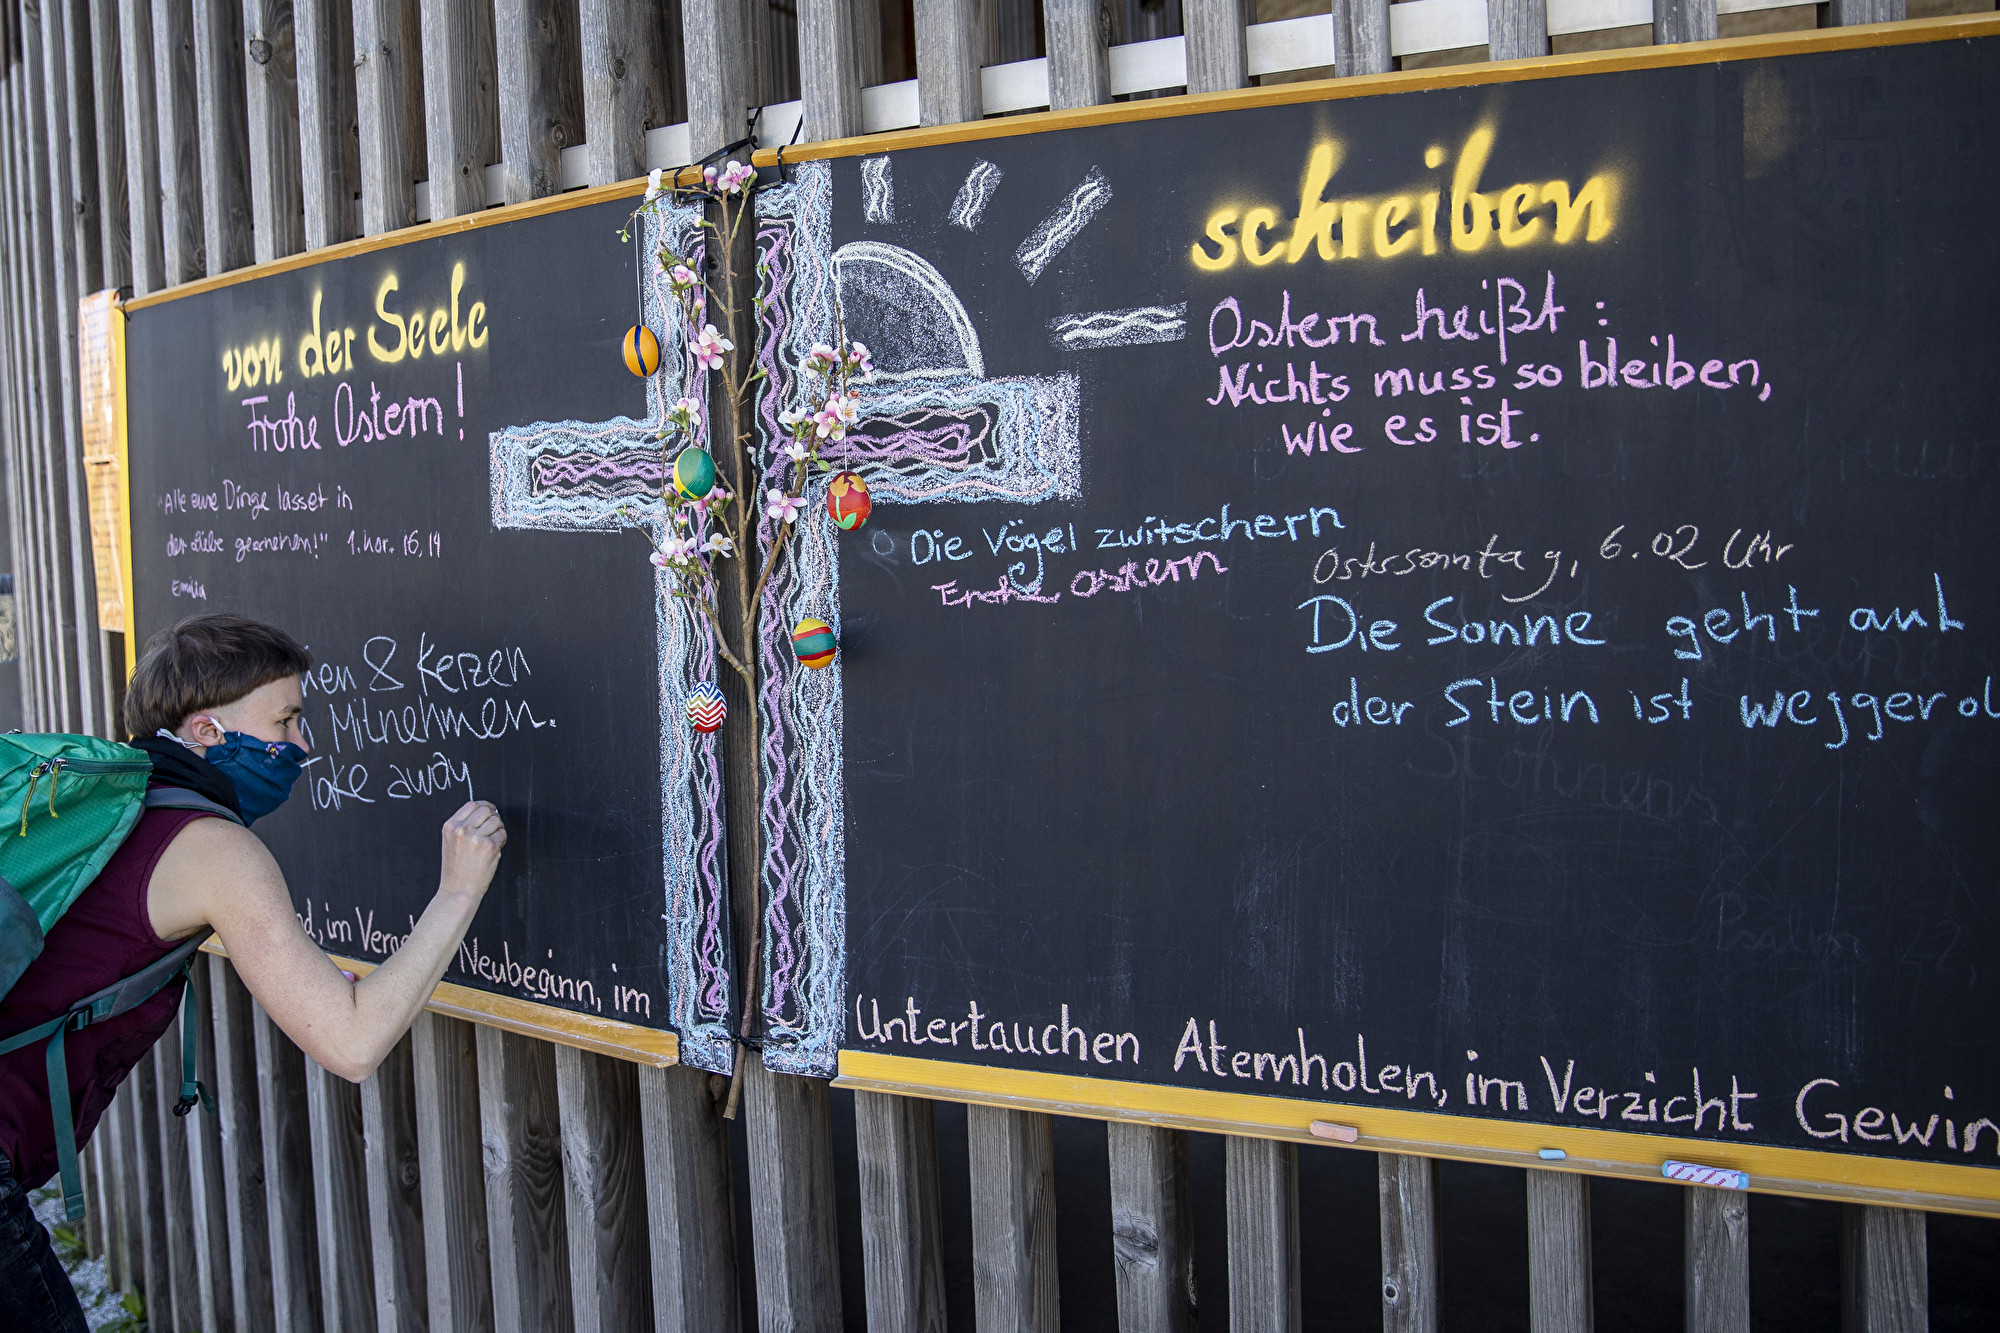 von der Seele
Frohe Ostern!
"Alle eure Dinge lasset in
der Liebe geschehen!" 1. Kor. 16,14
Emilia
nen & Kerzen
Mitnehmen.
Take away
nd, im Neubeginn, im
schreiben
Ostern heißt:
Nichts muss so bleiben,
wie es ist.
Die Vögel zwitschern
ostern
Ostersonntag, 6.02 Uhr
Die Sonne geht auf
der Stein ist weggerol
Untertauchen Atemholen, im Verzicht Gewin